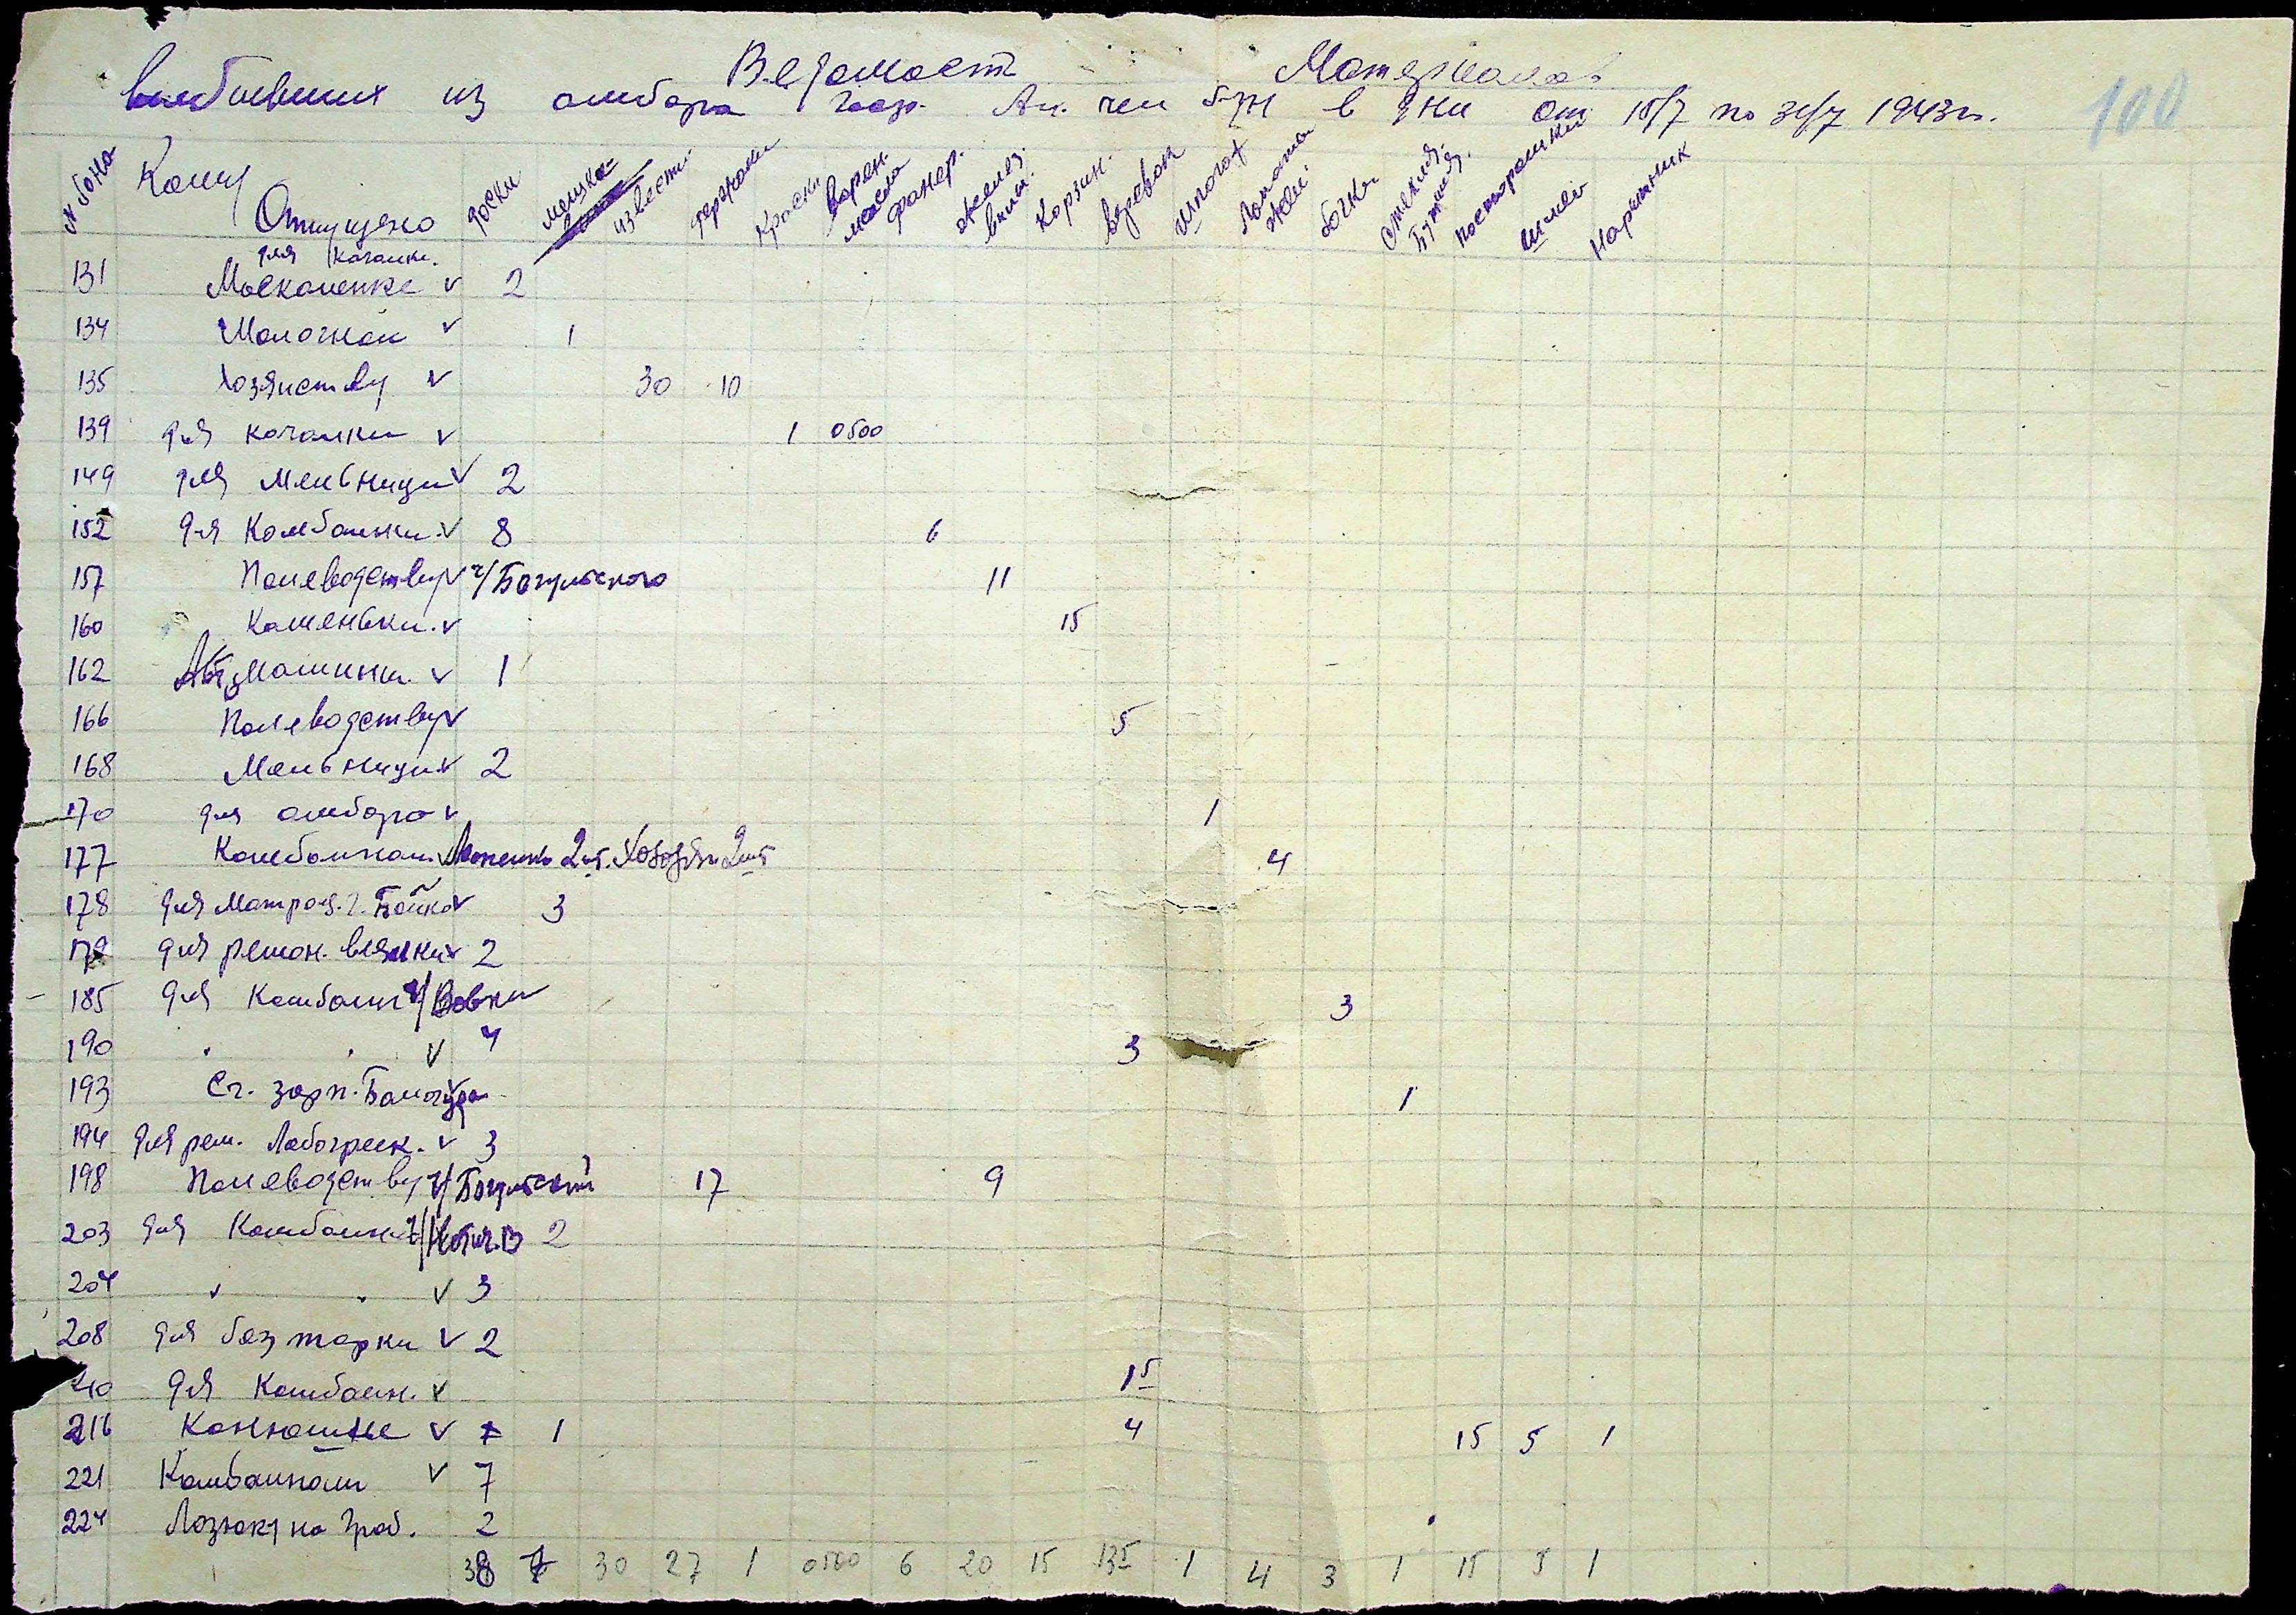 Ведомост Материалов
выбывших из амбара в дни от 15/7 по 31/7 1943г.
100
№ бона Кому Отпущено доски мешка извести держаки краски варен. масла фанер. желез. вилы. Корзин. веревок шпагат Лопаты желе. бочки стеклян. Бутыля. посторонки шлеи Нарытник
для качалки.
131 Москаленке v 2
134 Молочной v 1
135 Хозяиству v 30 10
139 для качалки v 1 0500
149 для Мельници v 2
152 для Комбайни. v 8 6
157 Полеводству v ч/Богульского 11
160 Каменьки. v 15
162 Автомашины. v 1
166 Полеводству v 5
168 Мельници v 2
170 для амбара v 1
177 Комбайнам v 2шт. 2шт 4
178 для Матрац. г. Бойко v 3
179 для ремон. веялки v 2
185 для Комбайн ч/Вовки 3
190 " " v 4 3
193 Сг. зарп. v 1
194 Для рем. Лобогреек. v 3
198 Полеводству ч/Богульский 17 9
203 для Комбайн. ч/ 2
204 " " v 3
208 для безтарки v 2
210 для Комбайн. v 15
216 Конюшне v 1 4 15 5 1
221 Комбайнам v 7
224 на гроб. 2
38 7 30 27 1 0500 6 20 15 135 1 4 3 1 15 5 1